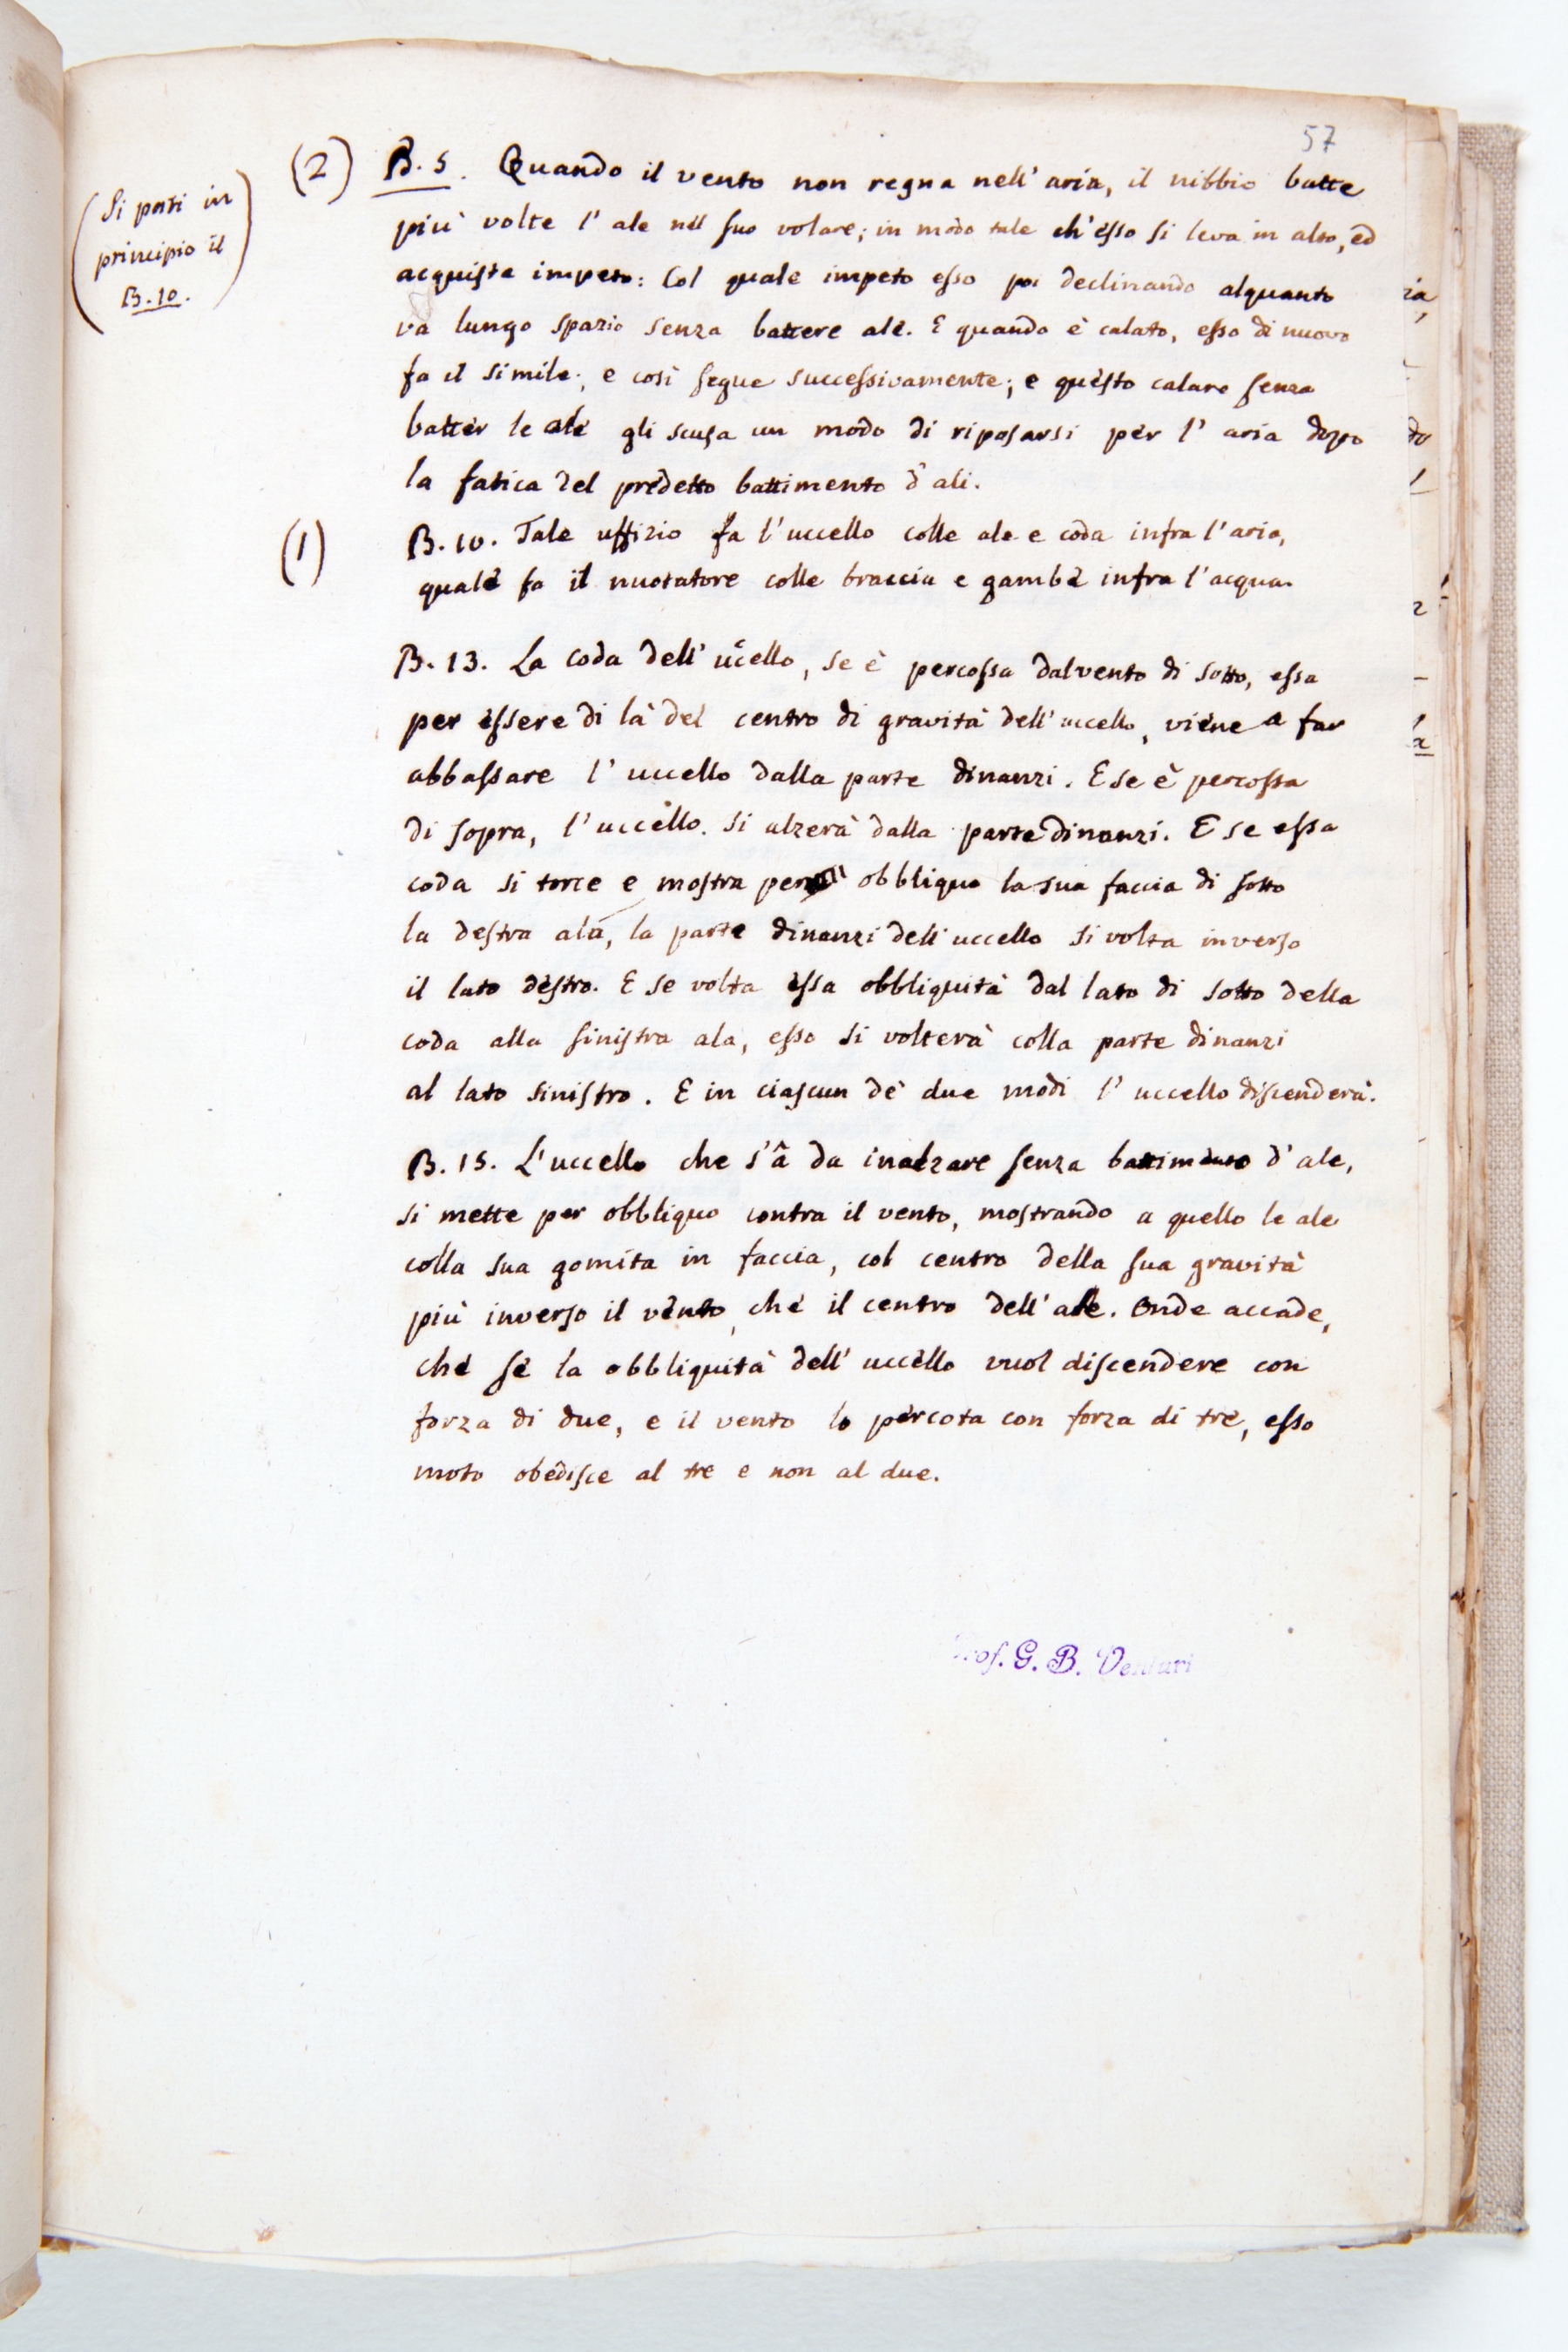 57
(Si porti in
principio il
B. 10.)
(2) B. 5. Quando il vento non regna nell' aria, il nibbio batte
più volte l' ale nel suo volare; in modo tale ch' esso si leva in alto, ed
acquista impeto: Col quale impeto esso poi declinando alquanto
va lungo spazio senza battere ale. E quando è calato, esso di nuovo
fa il simile; e così segue successivamente; e questo calare senza
batter le ale gli scusa un modo di riposarsi per l' aria dopo
la fatica del predetto battimento d' ali.
(1) B. 10. Tale uffizio fa l' uccello colle ale e coda infra l' aria,
quale fa il nuotatore colle braccia e gambe infra l' acqua.
B. 13. La coda dell' uccello, se è percossa dal vento di sotto, essa
per essere di là del centro di gravità dell' uccello, viene a far
abbassare l' uccello dalla parte dinanzi. E se è percossa
di sopra, l' uccello si alzerà dalla parte dinanzi. E se essa
coda si torce e mostra per obbliquo la sua faccia di sotto
la destra ala, la parte dinanzi dell' uccello si volta inverso
il lato destro. E se volta essa obbliquità dal lato di sotto della
coda alla sinistra ala, esso si volterà colla parte dinanzi
al lato sinistro. E in ciascun de' due modi l' uccello discenderà.
B. 15. L' uccello che s' â da inalzare senza battimento d' ale,
si mette per obbliquo contra il vento, mostrando a quello le ale
colla sua gomita in faccia, col centro della sua gravità
più inverso il vento, che il centro dell' ale. Onde accade,
che se la obbliquità dell' uccello vuol discendere con
forza di due, e il vento lo percota con forza di tre, esso
moto obedisce al tre e non al due.
Prof. G. B. Venturi